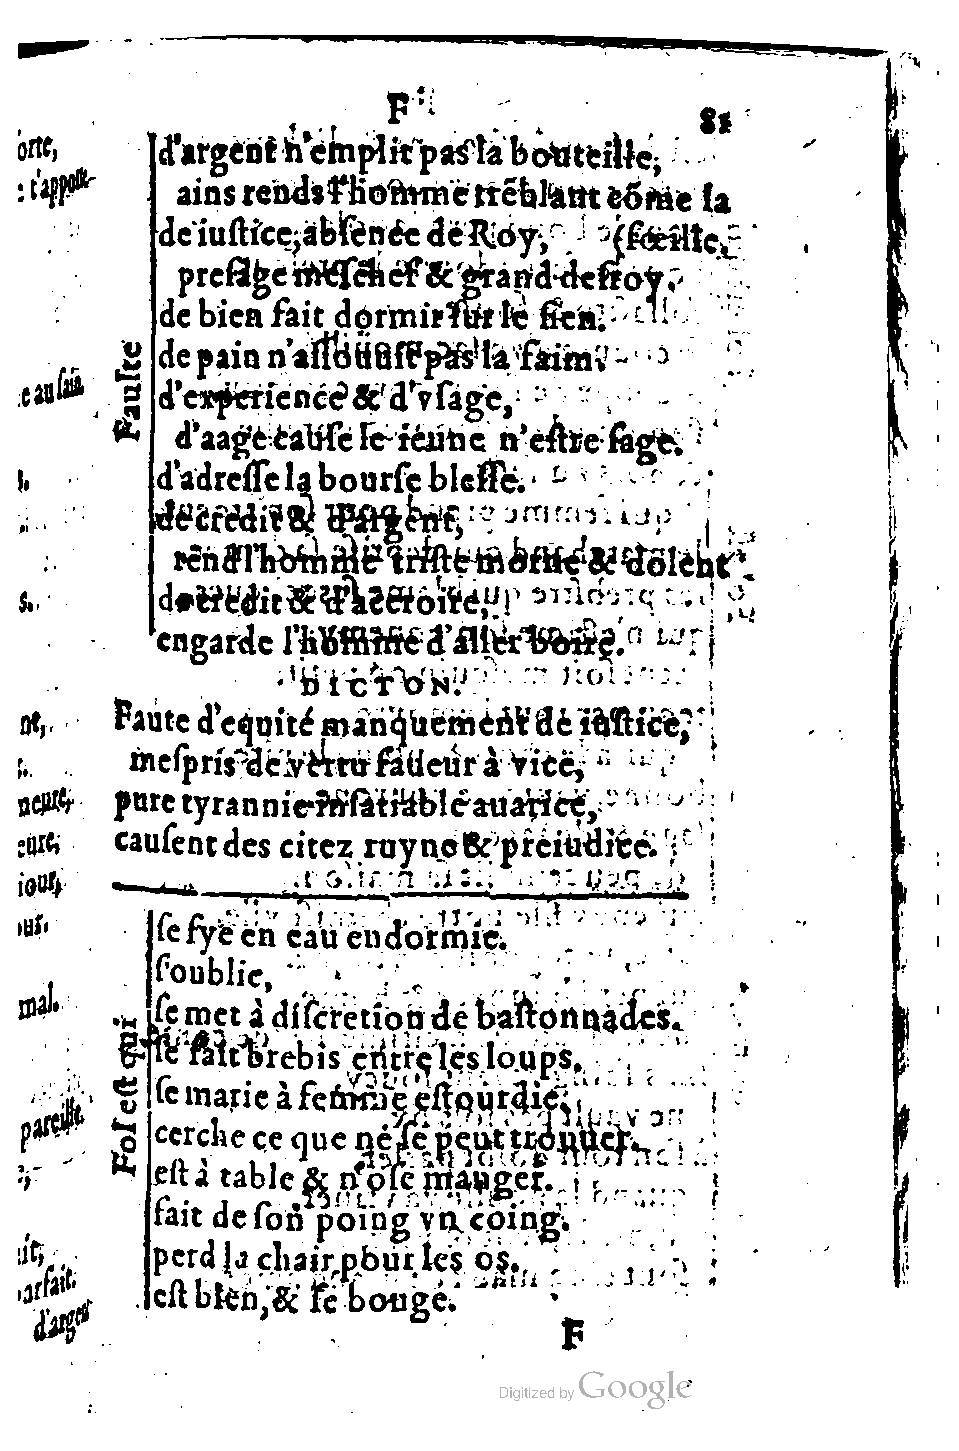 F
81
Faulte
d'argent n'emplit pas la bouteille,
ains rends l'homme trẽblant cõme la
(fœille.
de iuſtice, abſence de Roy,
preſage meſchef & grand deſroy.
de bien fait dormir ſur le ſien.
de pain n'aſſouuiſt pas la faim.
d'experience & d'vſage,
d'aage cauſe le ieune n'eſtre ſage.
d'adreſſe la bourſe bleſſe.
de credit & d'argent,
rend l'homme triſte morne & dolent.
de credit & d'accroire,
engarde l'homme d'aller boire.
DICTON.
Faute d'equité manquement de iuſtice,
meſpris de vertu faueur à vice,
pure tyrannie inſatiable auarice,
cauſent des citez ruyne & preiudice.
Fol eſt qui
ſe fye en eau endormie.
ſ'oublie,
ſe met à diſcretion de baſtonnades.
ſe fait brebis entre les loups.
ſe marie à femme eſtourdie,
cerche ce que ne ſe peut trouuer.
eſt à table & n'oſe manger.
fait de ſon poing vn coing.
perd la chair pour les os.
eſt bien, & ſe bouge.
F
Digitized by Google